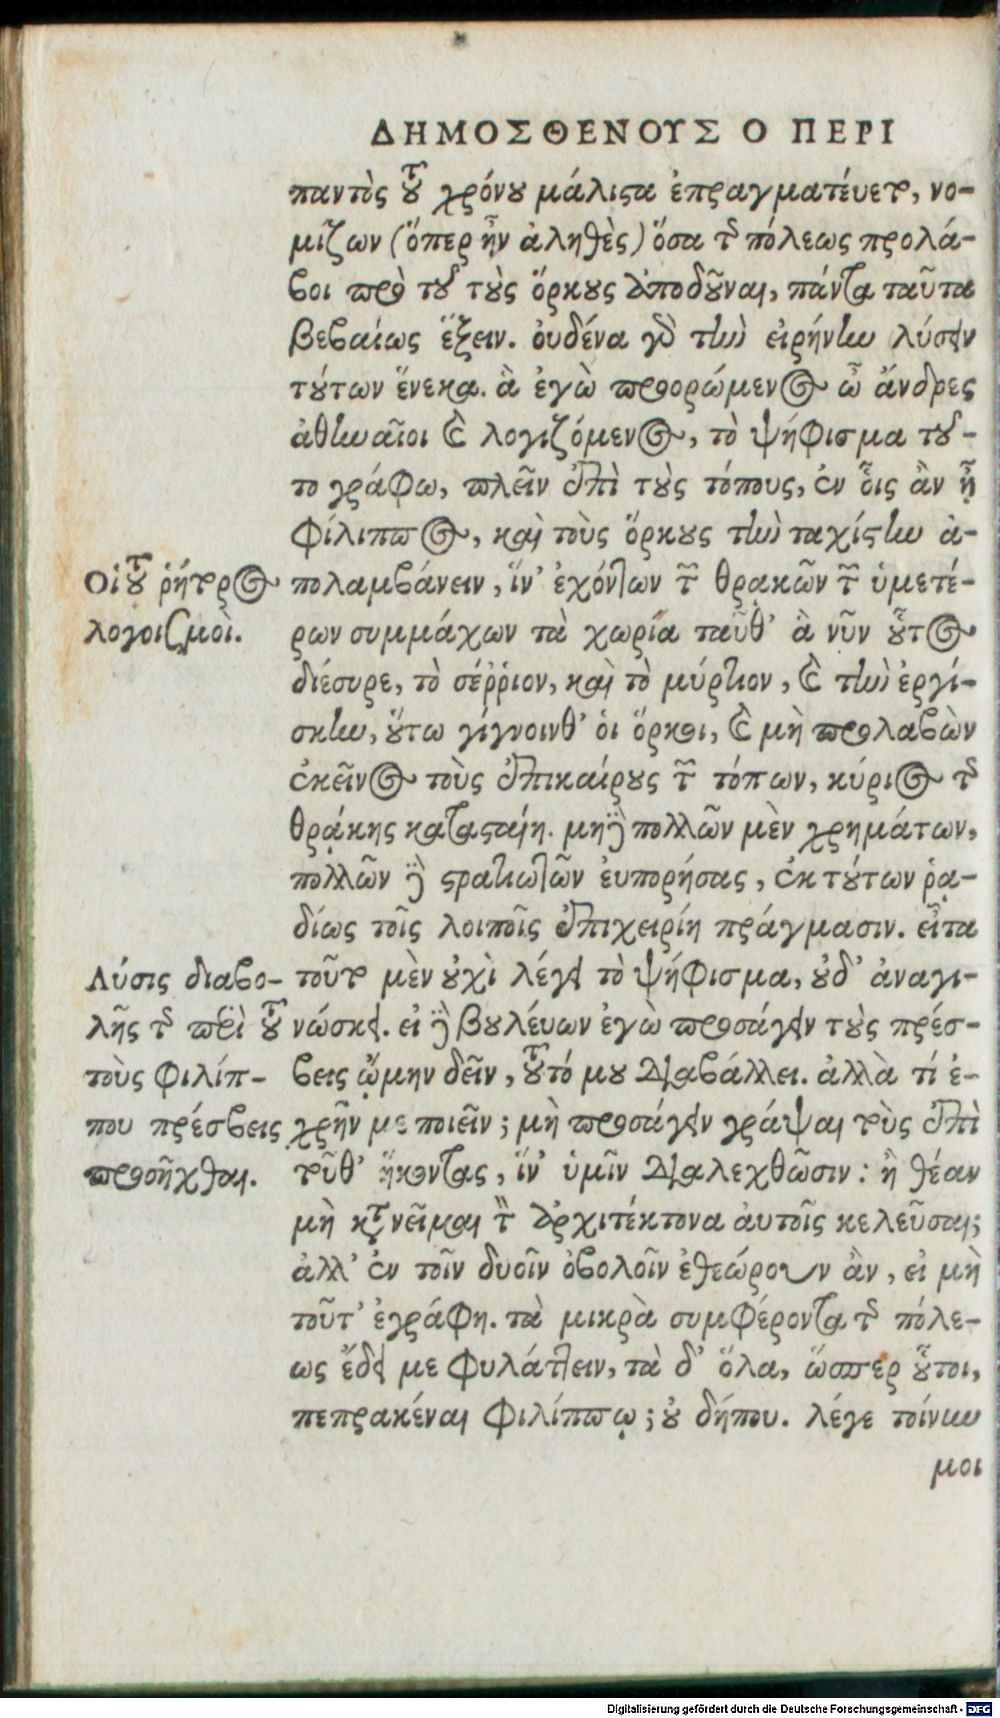 ΔΗΜΟΣΘΕΝΟΥΣ Ο ΠΕΡΙ
παντὸς τοῦ χρόνου μάλιστα ἐπραγματεύετο, νο-
μίζων (ὅπερ ἦν ἀληθὲς) ὅσα τῆς πόλεως προλά-
βοι πρὸ τοῦ τοὺς ὅρκους ἀποδοῦναι, πάντα ταῦτα
βεβαίως ἕξειν. οὐδένα γὰρ τὴν εἰρήνην λύσειν
τούτων ἕνεκα. ἃ ἐγὼ προορώμενος ὦ ἄνδρες
ἀθηναῖοι καὶ λογιζόμενος, τὸ ψήφισμα τοῦ-
το γράφω, πλεῖν ἐπὶ τοὺς τόπους, ἐν οἷς ἂν ᾖ
Φίλιππος, καὶ τοὺς ὅρκους τὴν ταχίστην ἀ-
πολαμβάνειν, ἵν' ἐχόντων τῶν θρᾳκῶν τῶν ὑμετέ-
ρων συμμάχων τὰ χωρία ταῦθ' ἃ νῦν οὗτος
διέσυρε, τὸ σέῤῥιον, καὶ τὸ μύρτιον, καὶ τὴν ἐργί-
σκην, οὕτω γίγνοινθ' οἱ ὅρκοι, καὶ μὴ προλαβὼν
ἐκεῖνος τοὺς ἐπικαίρους τῶν τόπων, κύριος τῆς
θρᾴκης κατασταίη. μηδὲ πολλῶν μὲν χρημάτων,
πολλῶν δὲ στρατιωτῶν εὐπορήσας, ἐκ τούτων ῥᾳ-
δίως τοῖς λοιποῖς ἐπιχειρίη πράγμασιν. εἶτα
τοῦτο μὲν οὐχὶ λέγει τὸ ψήφισμα, οὐδ' ἀναγι-
νώσκει. εἰ δὲ βουλεύων ἐγὼ προσάγειν τοὺς πρέσ-
βεις ᾤμην δεῖν, τοῦτό μου διαβάλλει. ἀλλὰ τί ἐ-
χρῆν με ποιεῖν; μὴ προσάγειν γράψαι τοὺς ἐπὶ
τοῦθ' ἥκοντας, ἵν' ὑμῖν διαλεχθῶσιν: ἢ θέαν
μὴ κατανεῖμαι τὸν ἀρχιτέκτονα αὐτοῖς κελεῦσαι;
ἀλλ' ἐν τοῖν δυοῖν ὀβολοῖν ἐθεώρουν ἂν, εἰ μὴ
τοῦτ' ἐγράφη. τὰ μικρὰ συμφέροντα τῆς πόλε-
ως ἔδει με φυλάττειν, τὰ δ' ὅλα, ὥσπερ οὗτοι,
πεπρακέναι Φιλίππῳ; οὐ δήπου. λέγε τοίνυν
μοι
Οἱ τοῦ ῥήτορος
λογοιζμοὶ.
Λύσις διαβο-
λῆς τῆς περὶ τοῦ
τοὺς φιλίπ-
που πρέσβεις
προσῆχθαι.
Digitalisierung gefördert durch die Deutsche Forschungsgemeinschaft - DFG